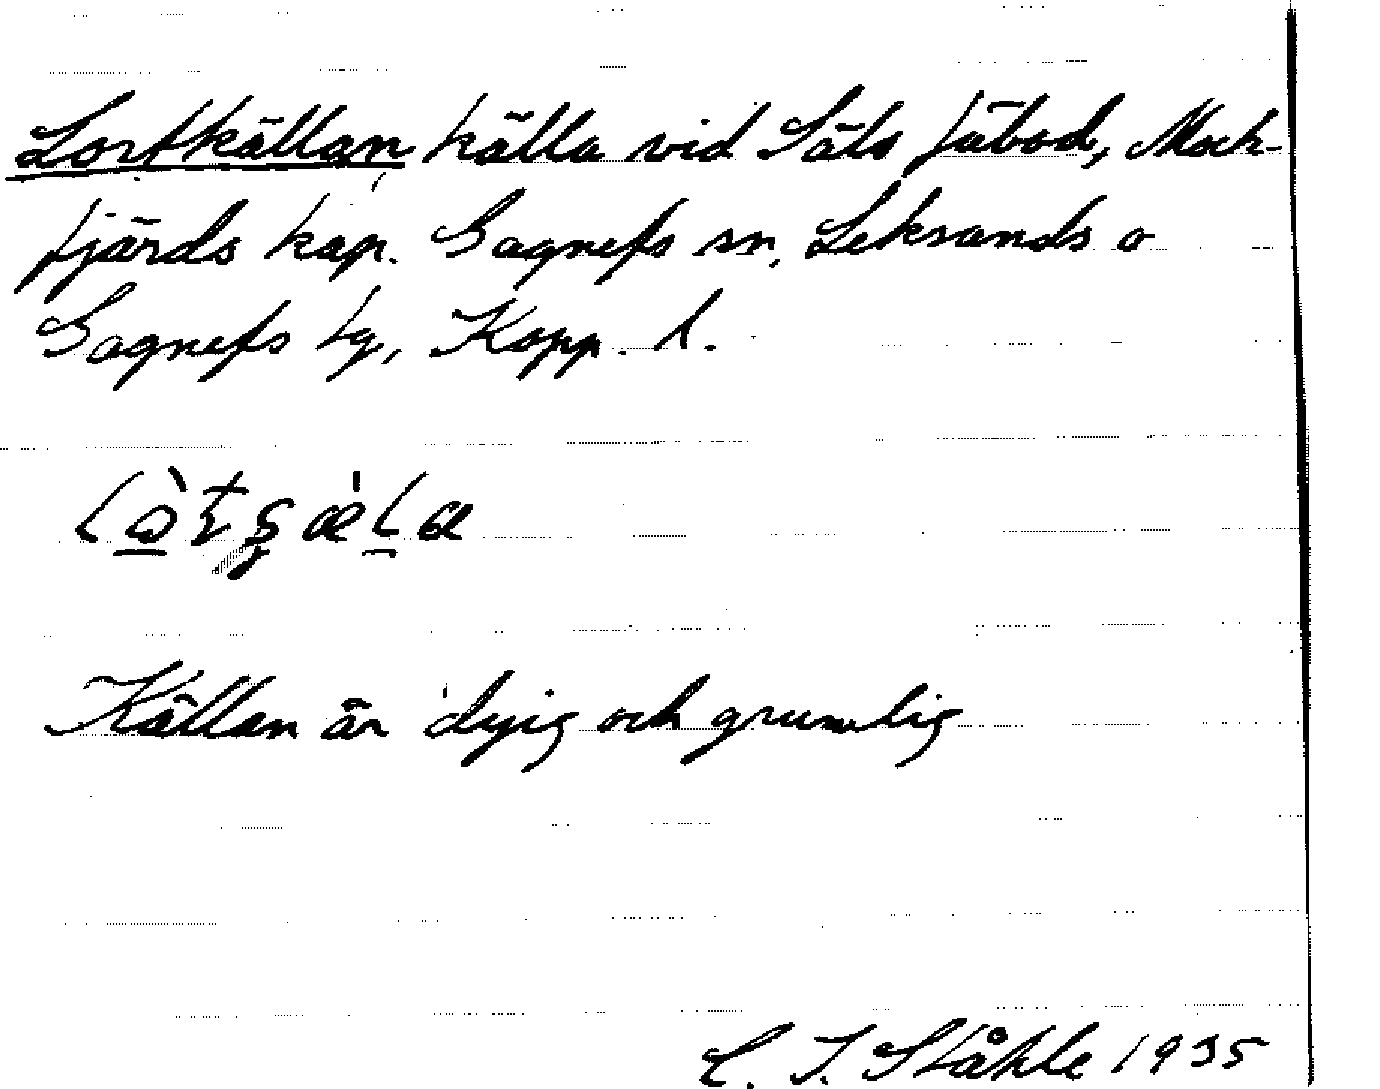 Lortkällan källa vid Säls fäbod, Mock-
fjärds kap. Gagnefs sn, Leksands o
Gagnefs tg, Kopp. l.
Källan är dyig och grumlig
C. I. Ståhle 1935